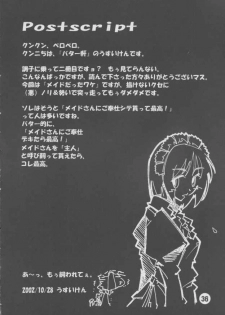 Postscript
クンクン、ペロペロ。
クンニちは、「バター軒」のうすいけんです。
調子に乗って二冊目ですョ?もぅ見てらんない。
こんなんばっかですが、読んで下さった方々ありがとうございマス。
今回は「メイドだったワケ」ですが、描けないクセに
(悪)ノリ&勢いで突っ走ってもぅダメダメで。
ソレはそうと「メイドさんにご奉仕シテ貰って最高!」
って人は多いですな。
バター的に、
「メイドさんにご奉仕
デキたら最高!」
メイドさんを「主人」
と呼び訓って貰えたら、
コレ最高。
あ~っ、もぅ飼われてぇ。
2002/10/28 うすいけん
36